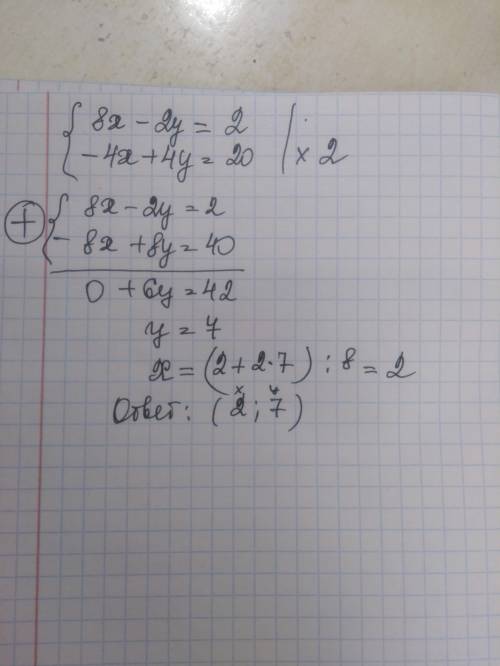 8x - 2y = 2
-4x + 4y = 20 | x 2
+ 8x - 2y = 2
- 8x + 8y = 40
0 + 6y = 42
y = 7
x = (2 + 2·7) : 8 = 2
x y
Ответ: (2; 7)